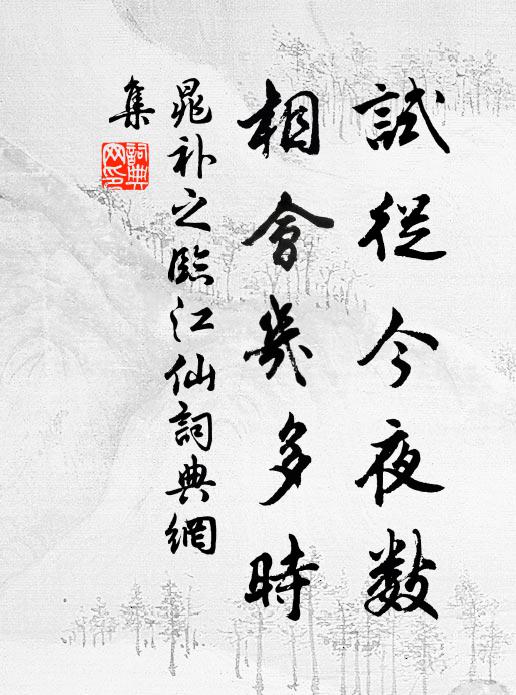 試從今夜數
相會幾多時
晁补之臨江仙詞典網
集
詞典
网